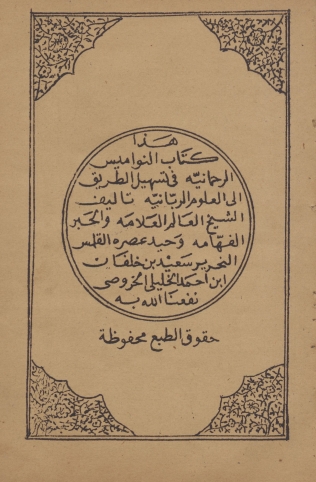 هذا
كتاب النواميس
الرحمانيّه فى تسهيل الطريق
الى العلوم الربّانيّه تأليف
الشيخ العالم العلامه والحبر
الفهّامه وحيد عصره القلمس
النحرير سعيد بن خلفان
ابن احمد الخليلى الخروصى
نفعنا الله به
حقوق الطبع محفوظة